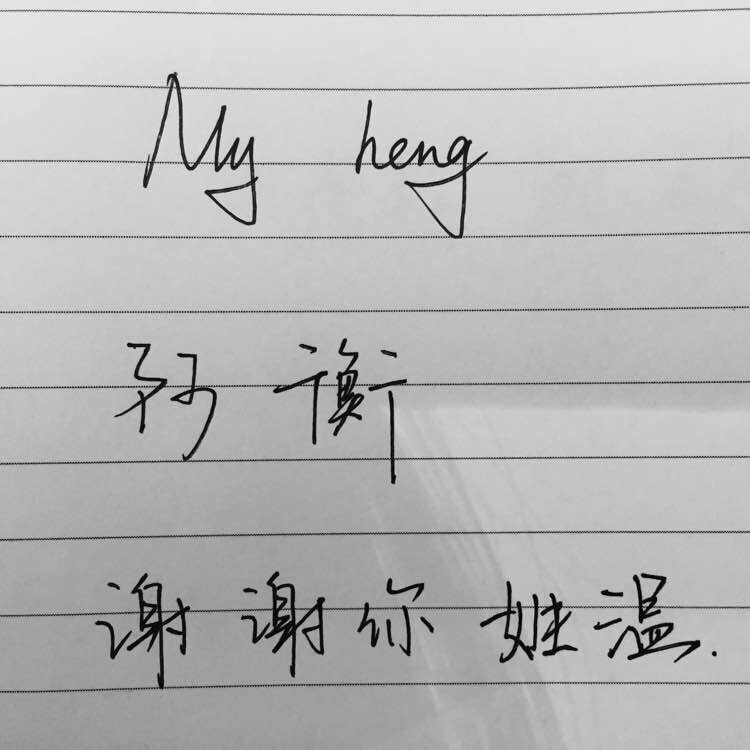 My heng
孙 衡
谢 谢 你 姓 温.